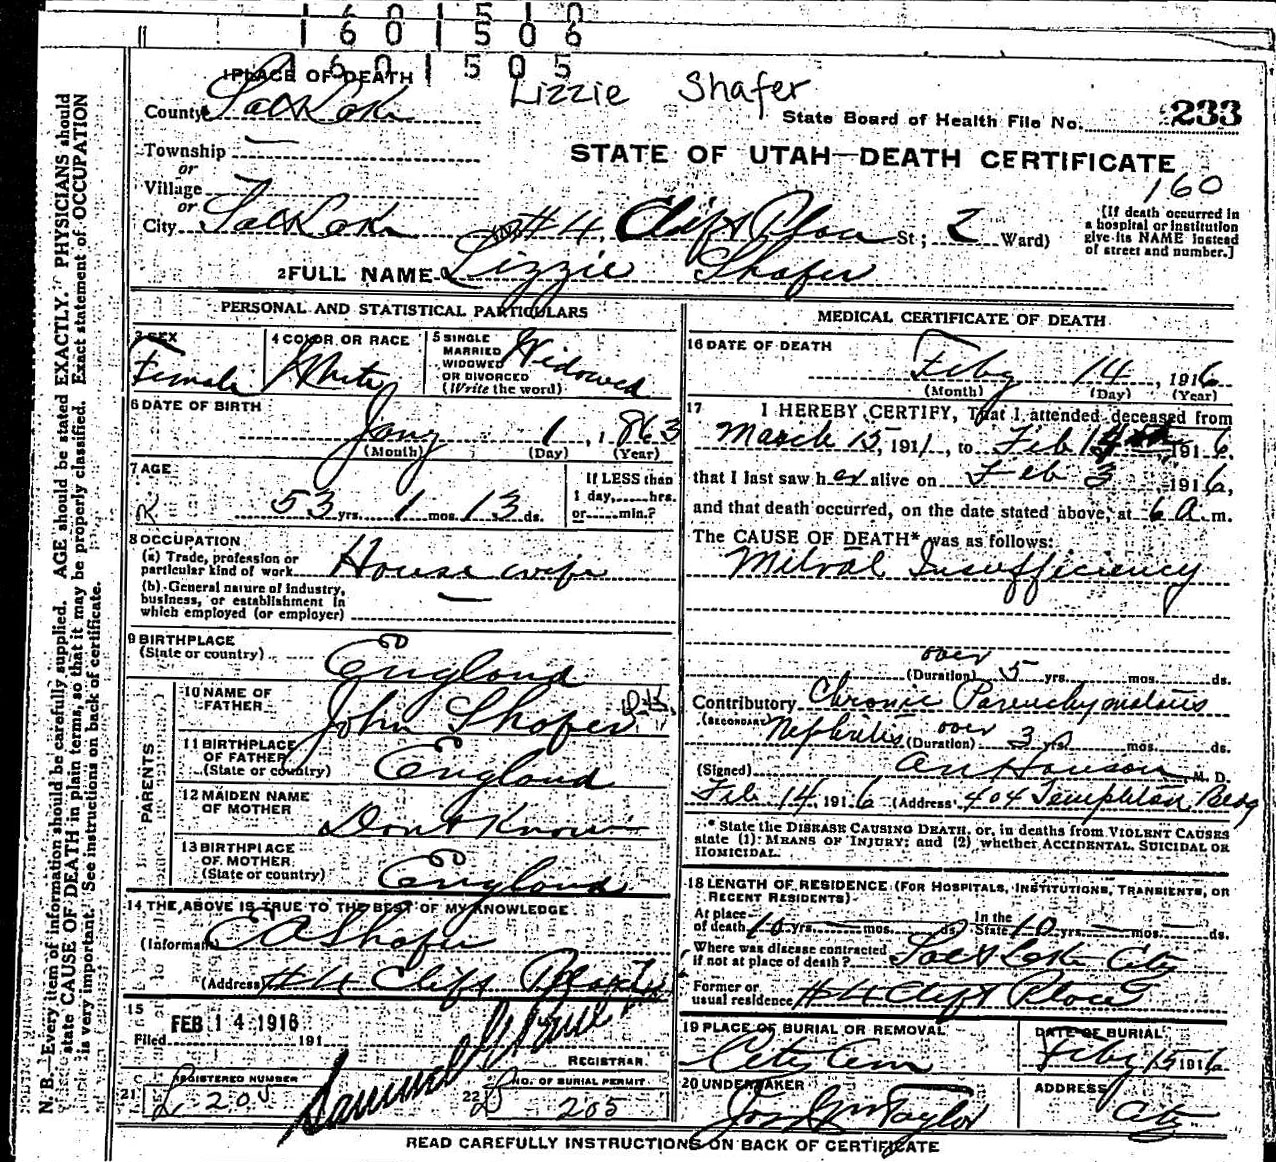 1601510
1601506
1601505
1 PLACE OF DEATH
Lizzie Shafer
County Salt Lake
State Board of Health File No. 233
Township —
or
STATE OF UTAH—DEATH CERTIFICATE
160
Village
or
City Salt Lake (No #4 Clift Place St; 2 Ward)
[If death occurred in
a hospital or institution
give its NAME instead
of street and number.]
2 FULL NAME Lizzie Shafer
PERSONAL AND STATISTICAL PARTICULARS
3 SEX
Female
4 COLOR OR RACE
White
5 SINGLE
MARRIED
WIDOWED
OR DIVORCED
(Write the word)
Widowed
6 DATE OF BIRTH
Jany 1, 1863
(Month) (Day) (Year)
7 AGE
53 yrs. 1 mos. 13 ds.
If LESS than
1 day,......hrs.
or......min.?
8 OCCUPATION
(a) Trade, profession or
particular kind of work
House wife
(b) General nature of industry,
business, or establishment in
which employed (or employer) —
9 BIRTHPLACE
(State or country)
England
PARENTS
10 NAME OF
FATHER
John Shafer
11 BIRTHPLACE
OF FATHER
(State or country)
England
12 MAIDEN NAME
OF MOTHER
Dont Know
13 BIRTHPLACE
OF MOTHER
(State or country)
England
14 THE ABOVE IS TRUE TO THE BEST OF MY KNOWLEDGE
(Informant) E A Shafer
(Address) #4 Clift Place
15
Filed FEB 14 1916 191
REGISTRAR
21 REGISTERED NUMBER
205
22 NO. OF BURIAL PERMIT
205
MEDICAL CERTIFICATE OF DEATH
16 DATE OF DEATH
Feby 14, 1916
(Month) (Day) (Year)
17 I HEREBY CERTIFY, That I attended deceased from
March 15, 1911, to Feb 14 1916.
that I last saw her alive on Feb 3, 1916,
and that death occurred, on the date stated above, at 6 A m.
The CAUSE OF DEATH* was as follows:
Mitral Insufficiency
over
(Duration) 5 yrs. mos. ds.
Contributory Chronic Parenchymatous
(SECONDARY) Nephritis over (Duration) 3 yrs. mos. ds.
(Signed) M. D.
Feb 14, 1916 (Address) 404 Templeton Bldg
* State the DISEASE CAUSING DEATH, or, in deaths from VIOLENT CAUSES
state (1) MEANS OF INJURY; and (2) whether ACCIDENTAL, SUICIDAL OR
HOMICIDAL.
18 LENGTH OF RESIDENCE (FOR HOSPITALS, INSTITUTIONS, TRANSIENTS, OR
RECENT RESIDENTS)
At place
of death 10 yrs. — mos. — ds.
In the
State 10 yrs. — mos. — ds.
Where was disease contracted
if not at place of death? Salt Lake City
Former or
usual residence #4 Clift Place
19 PLACE OF BURIAL OR REMOVAL
City Cem
DATE OF BURIAL
Feby 15 1916
20 UNDERTAKER
Jos Wm Taylor
ADDRESS
City
READ CAREFULLY INSTRUCTIONS ON BACK OF CERTIFICATE
N. B.—Every item of information should be carefully supplied. AGE should be stated EXACTLY. PHYSICIANS should
state CAUSE OF DEATH in plain terms, so that it may be properly classified. Exact statement of OCCUPATION
is very important. See instructions on back of certificate.